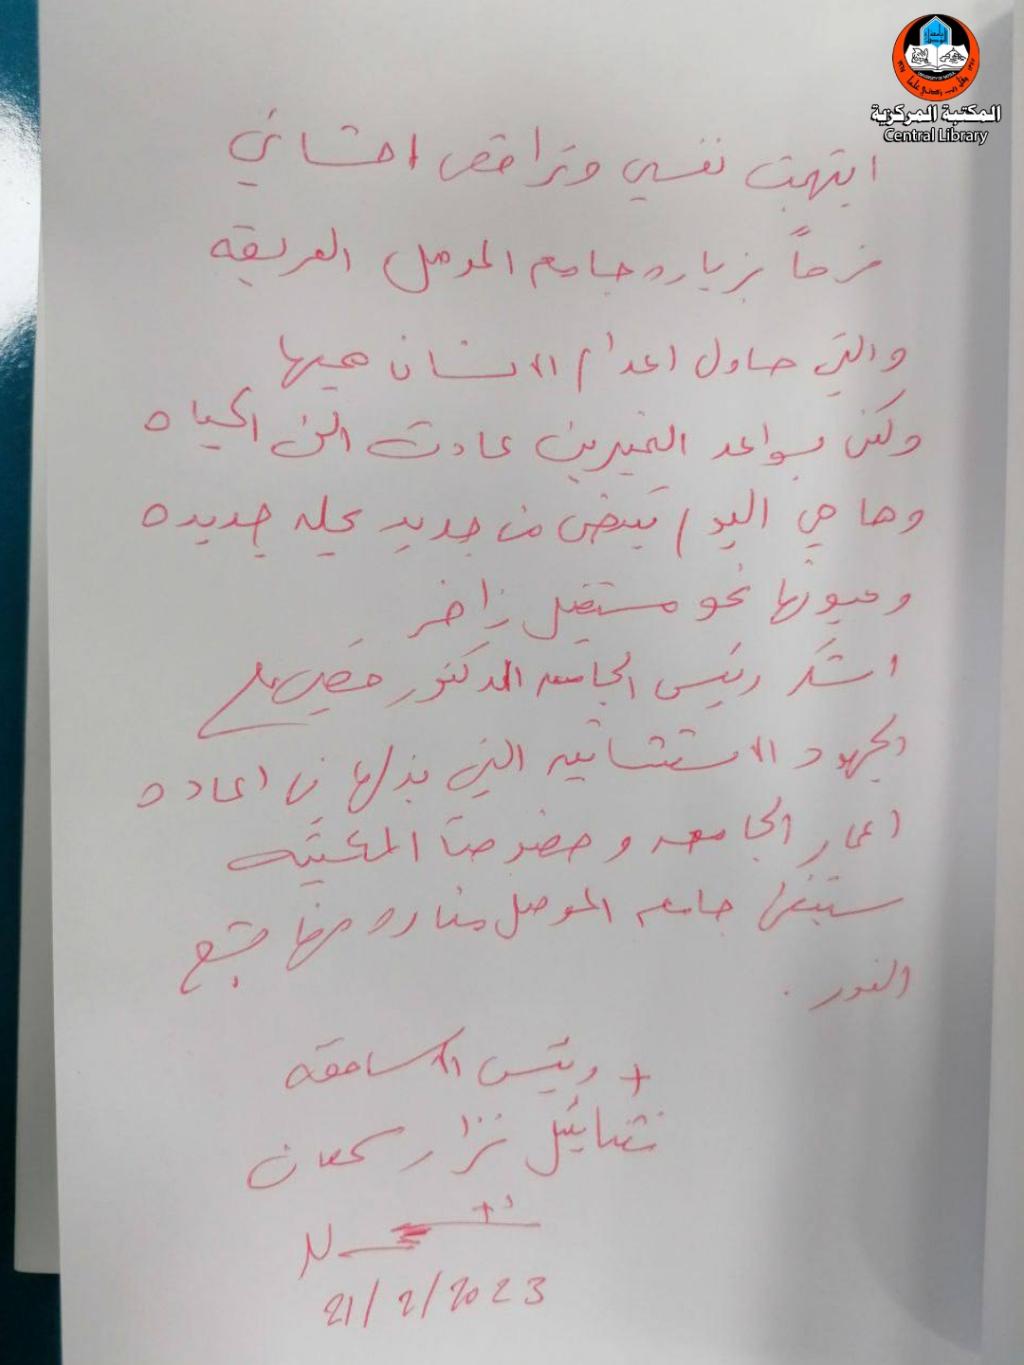 المكتبة المركزية
Central Library
ابتهجت نفسي وتراقص احشائي
فرحاً بزياره جامعه الموصل العريقه
والتي حاول اعداء الانسان
ولكن بسواعد الخيرين عادت الى الحياه
وها هي اليوم تنهض من جديد بحله جديده
وعيونها نحو مستقبل زاخر
اشكر رئيس الجامعه الدكتور قصي
الجهود الاستثنائيه التي بذلها في اعاده
اعمار الجامعه وخصوصاً المكتبه
ستبقى جامعه الموصل مناره منها يشع
النور .
+ رئيس الاساقفه
نثنائيل نزار سمعان
21/2/2023